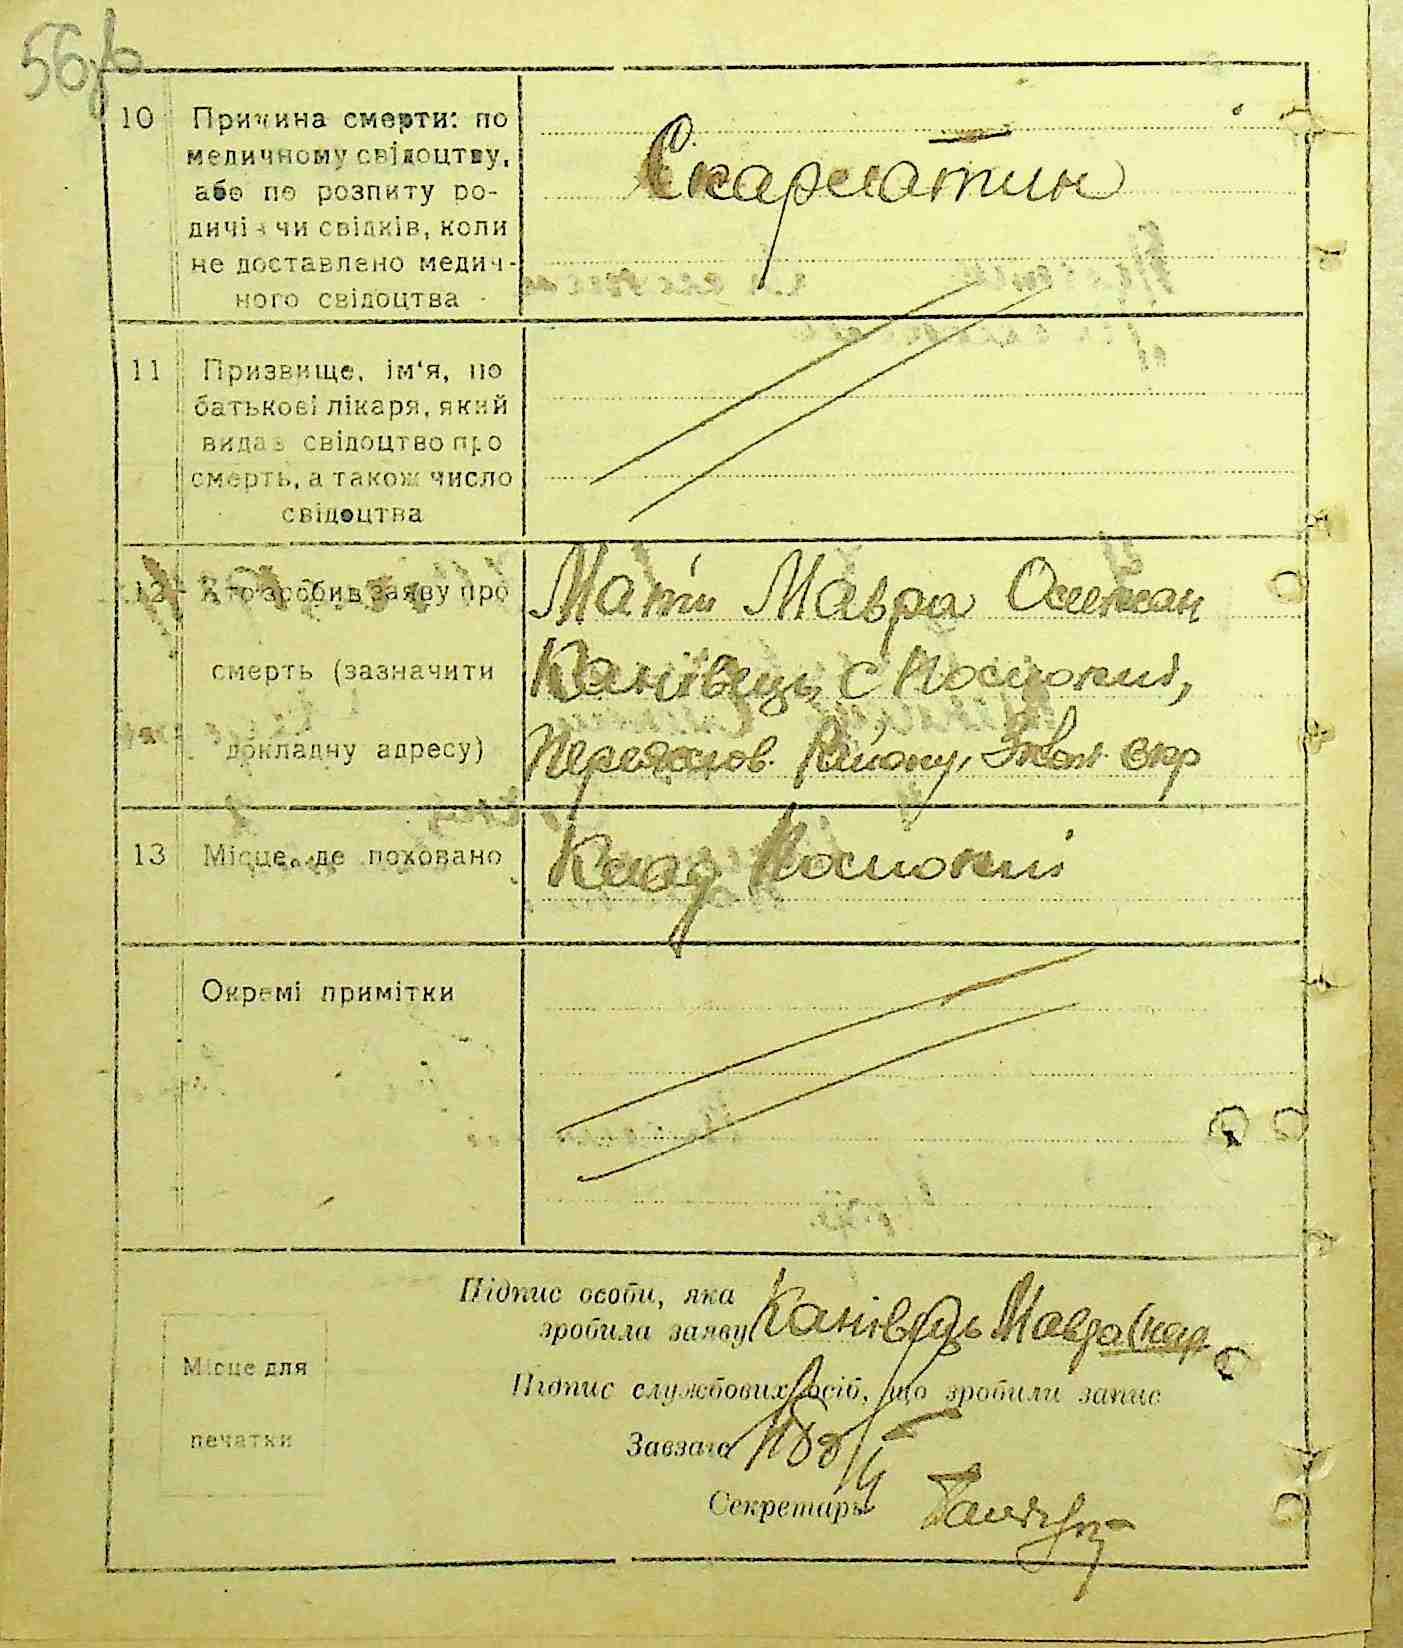 56
10 Причина смерти: по
медичному свідоцтву,
або по розпиту ро-
дичів чи свідків, коли
не доставлено медич-
ного свідоцтва
Скарлатин
11 Призвище, ім‘я, по
батькові лікаря, який
видав свідоцтво про
смерть, а також число
свідоцтва
12 Хто зробив заяву про
смерть (зазначити
докладну адресу)
Мати Мавра
Канівець, с
Переяслов. Району, окр
13 Місце, де поховано
Клад
Окремі примітки
Підпис особи, яка
зробила заяву Канівець Мавра
Підпис службових осіб, що зробили запис
Місце для
печатки
Завзагс
Секретарь